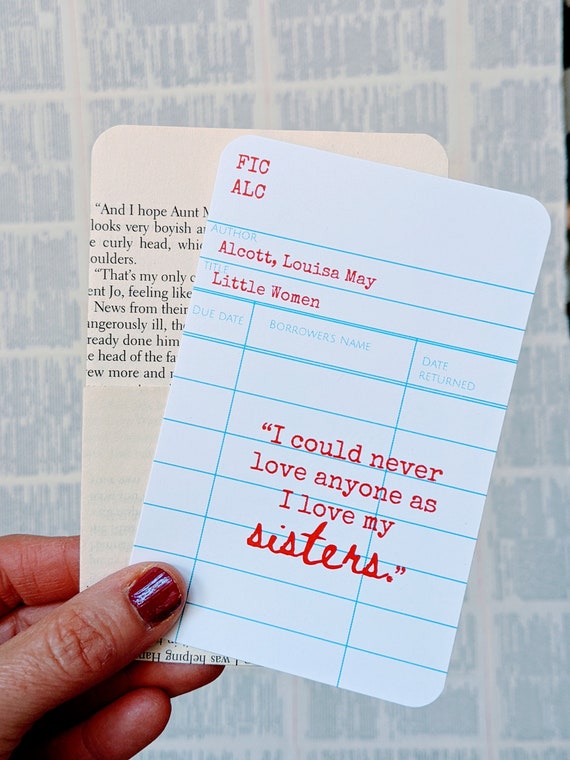 FIC
ALC
AUTHOR
Alcott, Louisa May
TITLE
Little Women
DUE DATE BORROWER'S NAME DATE RETURNED
“I could never
love anyone as
I love my
sisters.”
“And I hope Aunt
looks very boyish an
curly head, whic
oulders.
“That's my only c
ent Jo, feeling like
News from their
angerously ill, the
ready done him
e head of the fa
ew more and
was helping